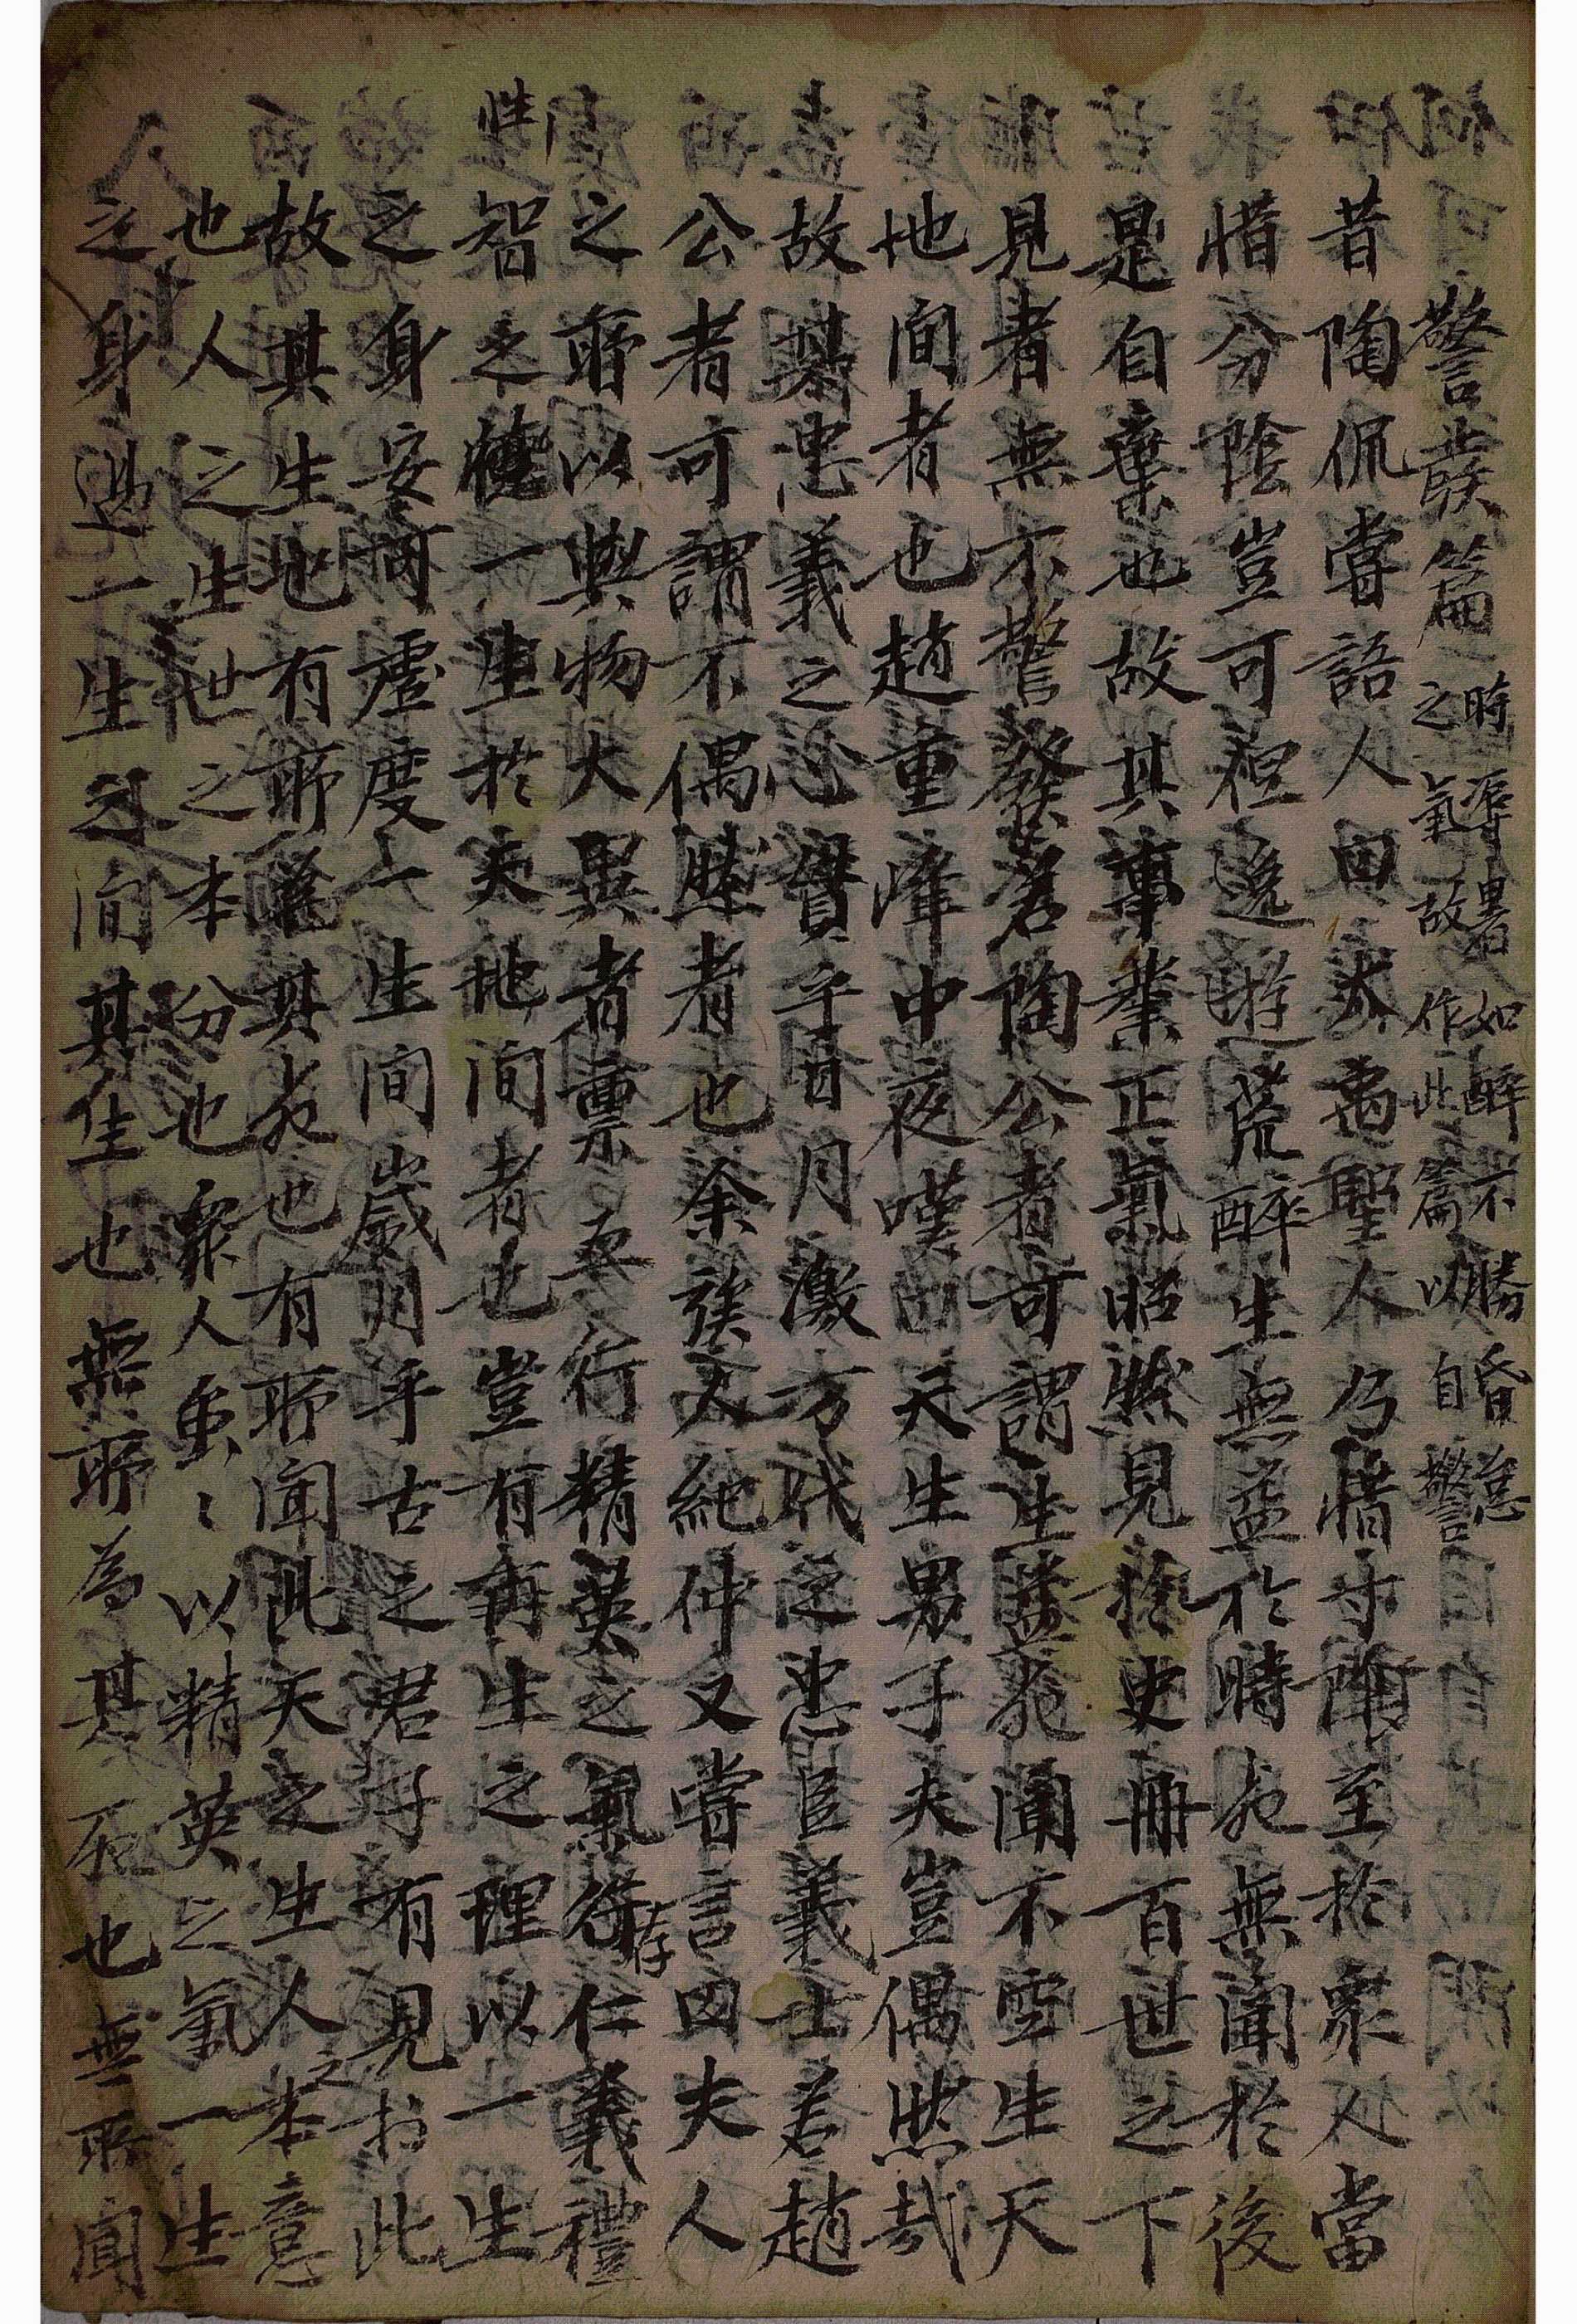 警發篇 時溽暑如醉不勝昏怠
之氣故作此篇以自警
昔陶侃嘗語人曰大禹聖人乃惜寸陰至於衆人當
惜分陰豈可但逸遊荒醉生無益於時死無聞於後
是自棄也故其事業正氣昭然見於史冊百世之下
見者無不警發若陶公者可謂生益死聞不空生天
地間者也趙重峰中夜嘆曰天生男子夫豈偶然哉
故其忠義之心實乎日月激方代之忠臣義士若趙
公者可謂不偶然者也余族人紀仲又嘗言曰夫人
之所以與物大異者稟五行精英之氣存仁義禮
智之性一生於天地間者也豈有再生之理以一生
之身安可虛度一生間歲月乎古之君子有見於此
故其生也有所爲其死也有所聞此天之生人之本意
也人之生世之本分也衆人虫虫以精英之氣一生
之身過一生之間其生也無所為其死也無所聞